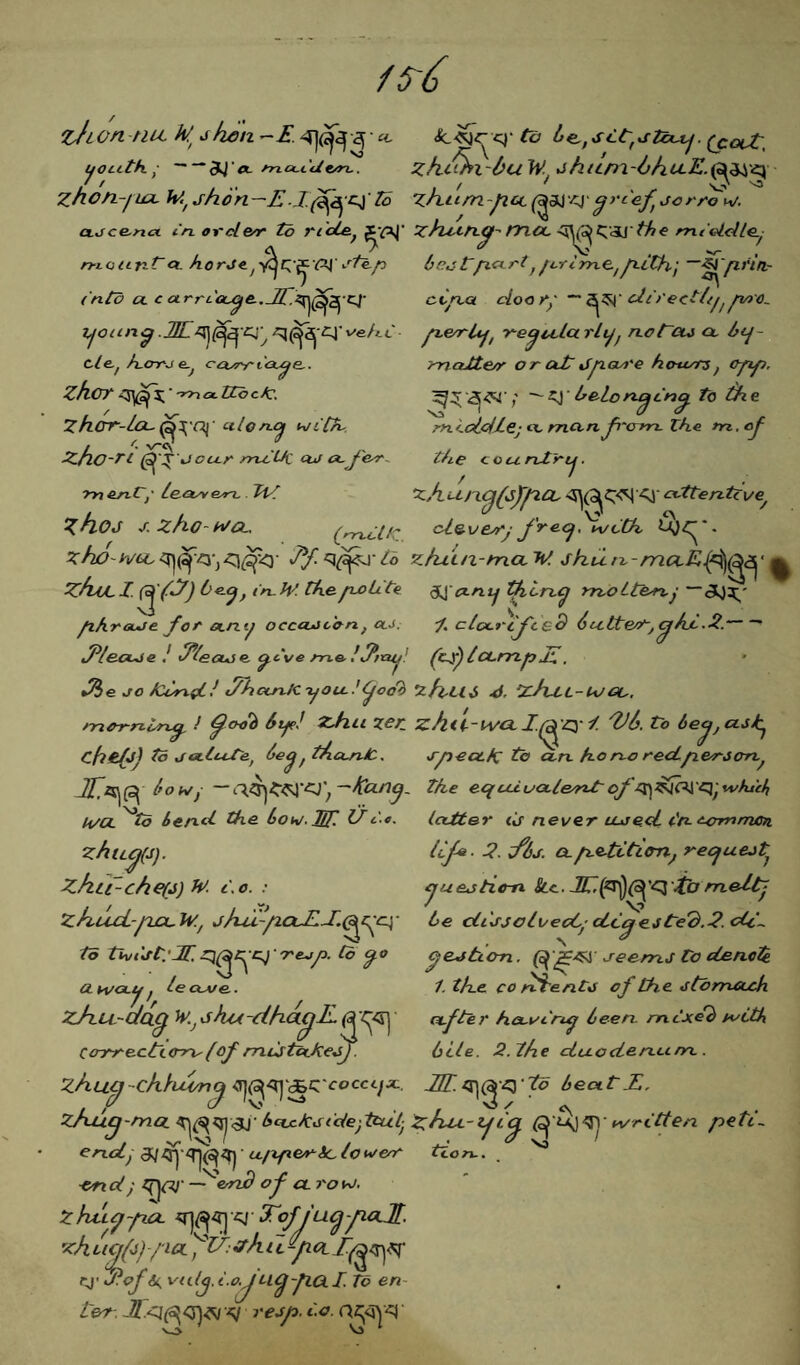 156
zhon-nu W, shön — E. གཞོན་ནུ་ a
youth; — — མ་ a maiden.
zhon-pa W, shön — E. I. བཞོན་པ་ to
ascend in order to ride, རྟ་ལ་
mount a horse, step
into a carriage. II.
young. III. vehi-
cle, horse, carriage.
zhor mattock.
zhor-la ཞོར་ལ་ along with.
zho-ri sour milk as a fer-
ment; leaven. W.
zhos s. zho-wa. (milk.
zho-wa Pf. to
zhu I. ཞུ་ beg, in W. the polite
phrase for any occasion, as:
Please! Please give me! Pray!
Be so kind! Thank you! Good
morning! Good bye! zhu zer
che(s) to salute, beg, thank.
II. གཞུ་ bow; — kang-
wa to bend the bow. III. U i.o.
zhug(s).
zhu-che(s) W. i.o.:
zhud-pa W., shu-pa E. I. ཞུད་པ་
to twist. II. resp. to go
away, leave.
zhu-dag W., shu-dhag E. ཞུ་དག་
correction (of mistakes).
zhug-chhung coccyx.
zhug-ma གཞུག་མ་ backside; tail;
end; upper & lower
end; — end of a row.
zhug-pa གཞུག་པ་ I. of jug-pa II.
zhug(s)-pa, U: zhu-pa I. ཞུགས་
པ་ Pf of & vulg. i.o. jug-pa I. To en-
ter. II. བཞུགས་པ་ resp. i.o.
& to be, sit, stay. (coat.
zhum-bu W, shum-bhu E.
zhum-pa ཞུམ་པ་ grief, sorrow.
zhung-ma the middle,
best part, prime, pith; — prin-
cipa door; — directly, pro-
perly, regularly, not as a by-
matter or at spare hours, opp.
; — པ་ belonging to the
middle; a man from the m. of
the country.
zhung(s)pa གཞུངས་པ་ attentive,
clever; freq. with
zhun-ma W. shun-ma E. ཞུན་
མ་ any thing molten; — མར་
1. clarified butter, ghi. 2. — —
lamp II.
zhus s. zhu-wa.
zhu-wa I. ཞུ་བ་ 1. Vb. to beg, ask,
speak to an honored person,
the equivalent of which
latter is never used in common
life. 2. Sbs. a petition, request,
question &c. II. to melt,
be dissolved; digested. 2. di-
gestion. seems to denote
1. the contents of the stomach
after having been mixed with
bile. 2. the duodenum.
III. to beat I.
zhu-yig ཞུ་ཡིག་ written peti-
tion.